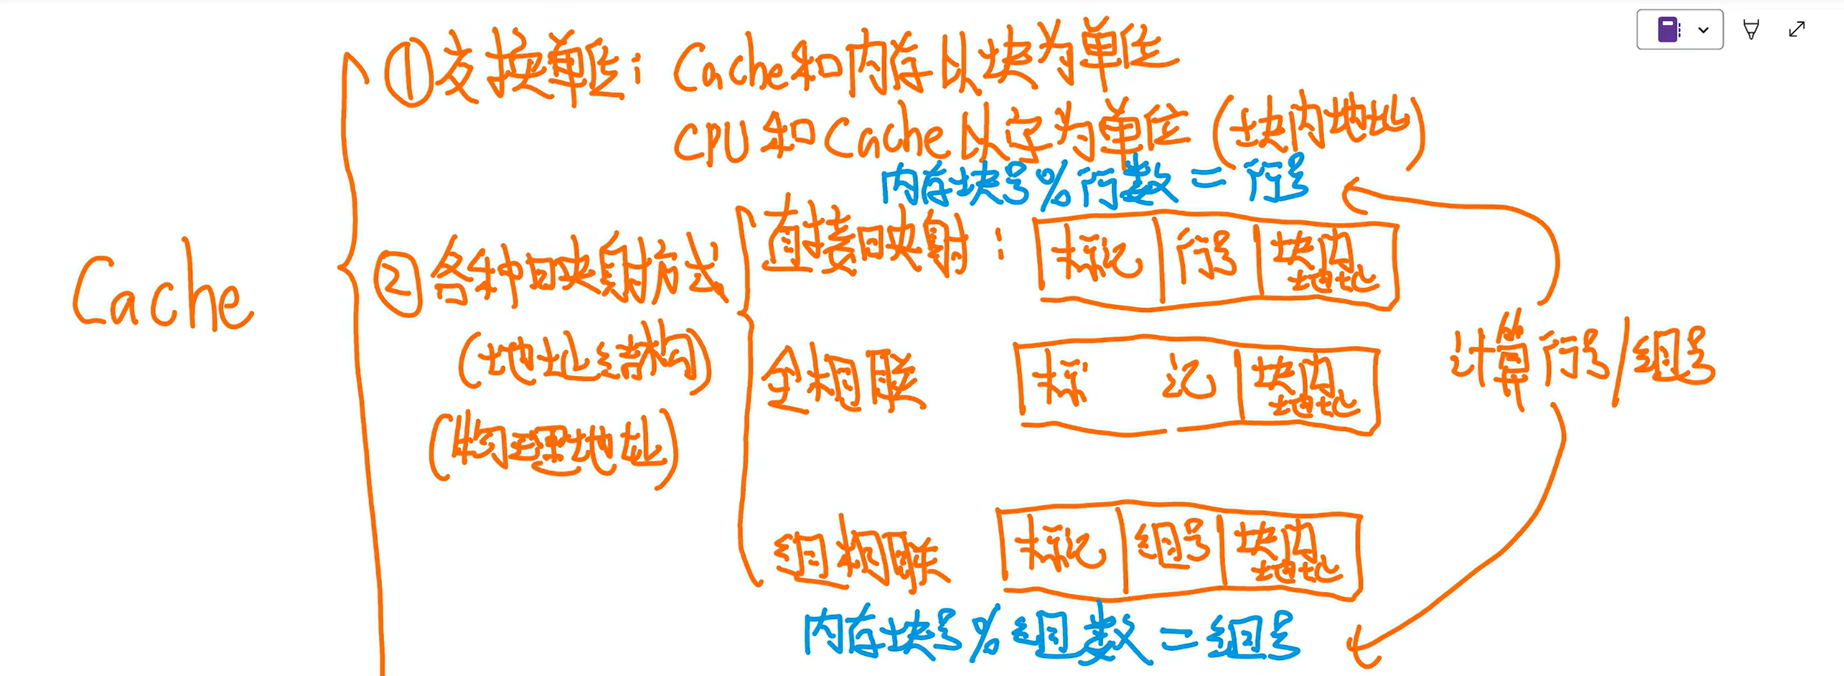 Cache
①交换单位：Cache和内存以块为单位
CPU和Cache以字为单位（块内地址）
②各种映射方式
（地址结构）
（物理地址）
内存块号%行数＝行号
直接映射：标记 行号 块内地址
全相联 标记 块内地址
组相联 标记 组号 块内地址
内存块号%组数＝组号
计算行号/组号